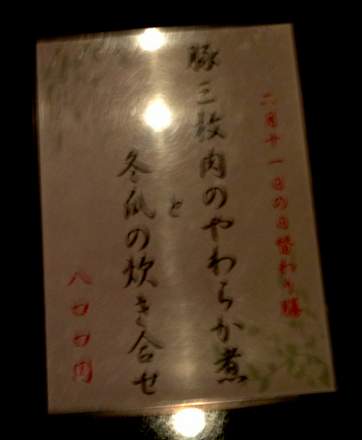 六月十一日の日替わり膳
豚三枚肉のやわらか煮
と
冬瓜の炊き合せ
八〇〇円